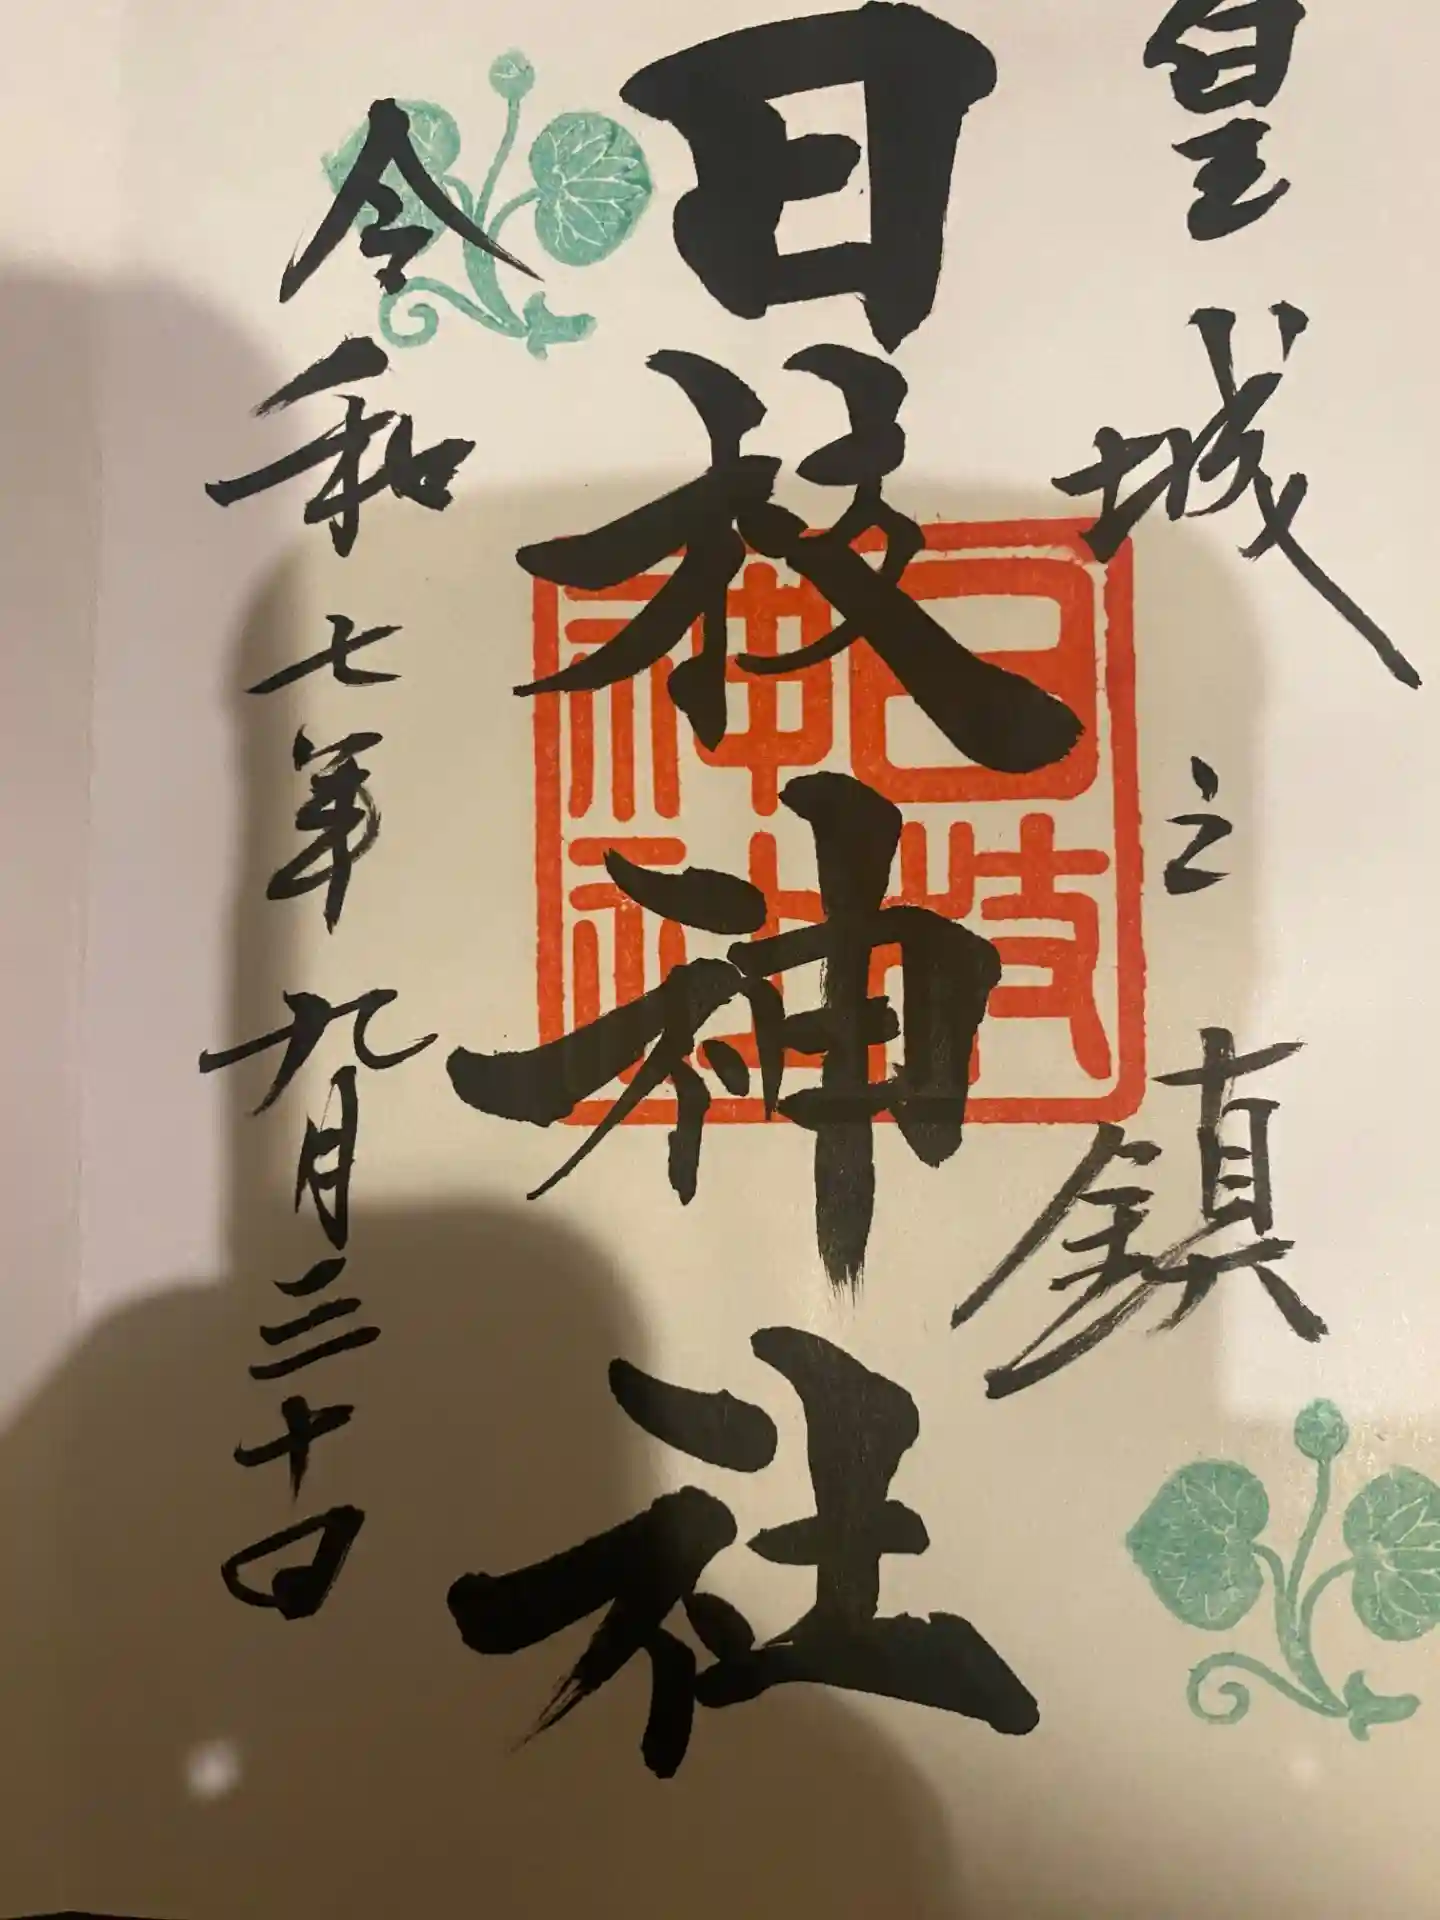 皇城之鎮
日枝神社
日枝神社
令和七年九月三十日